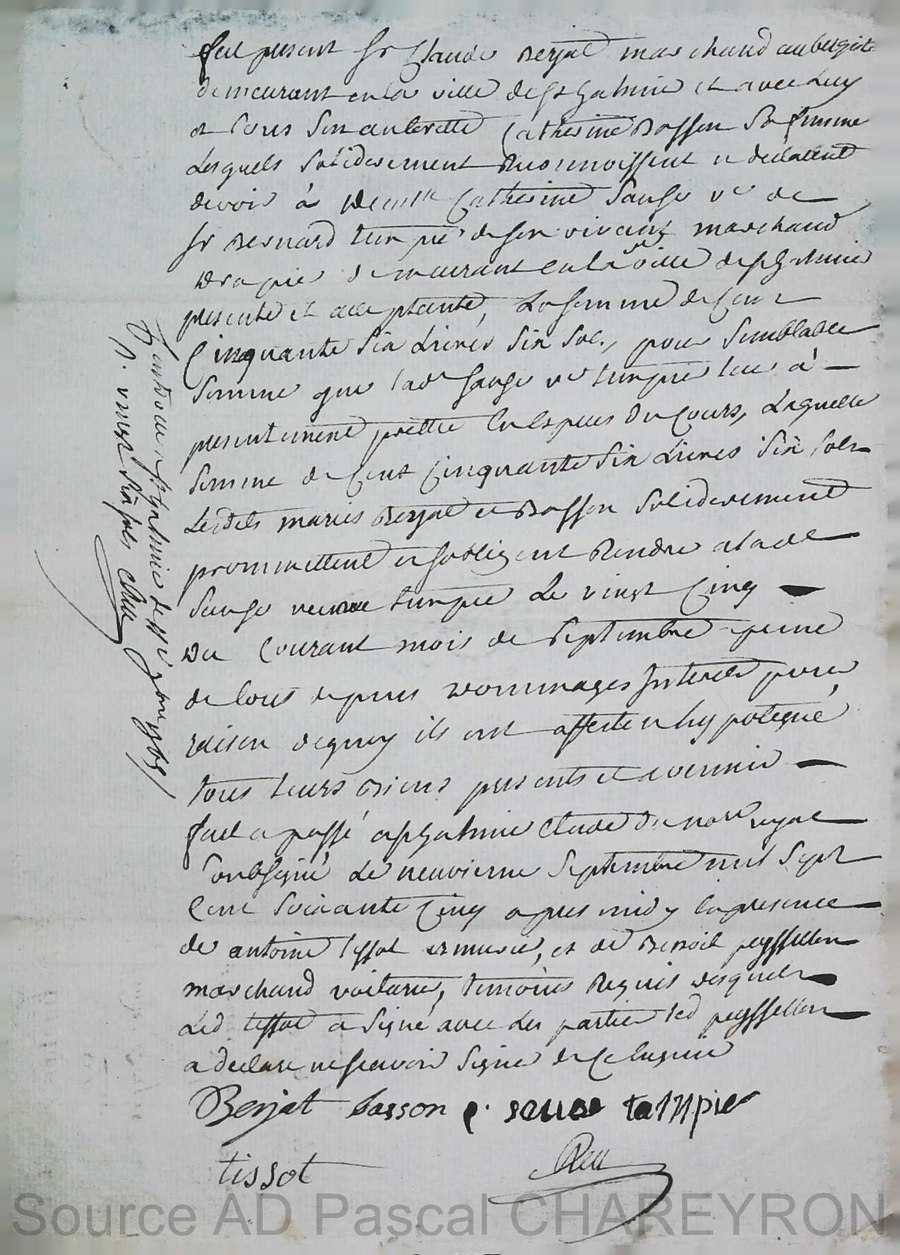 fut présent Sr Claude Berjat marchand aubergiste
demeurant en la ville de St Galmie et avec luy
et sous son autoritté Catherine Basson sa femme
lesquels solidérement reconnoissent et déclarent
devoir à demlle Catherine Sauze ve de
Sr Bernard de son vivant marchand
drapié demeurant en la ville de St Galmié
presente et acceptante, la somme de cent
Cinquante six livres six sols, pour semblable
somme que lade Sauze ve leur à
presentement prettée en espèces du cours, laquelle
somme de cent cinquante six livres six sols
lesdits mariés Berjat et Basson solidérement
promettent et sobligent rendre a lade
Sauze veuve le vingt cinq
du courant mois de septembre a peine
de tous depens dommages interets pour
raison dequoy ils ont affecté et hypotéqué
tous leurs biens presents et avennir
fait et passé a St Galmié etude du nore royal
soubsigné le neuvieme septembre mil sept
cent soixante cinq apres midy en presence
de antoine tissot et de Benoit peyssellon
marchand voiturié, temoins requis desquels
led tissot a signé avec les parties led peyssellon
a declaré ne scavoir signé de ce enquis
Berjat basson c. sause tanpier
tissot
Source AD Pascal CHAREYRON
Controllé a St Galmié le
R. vingt six sols